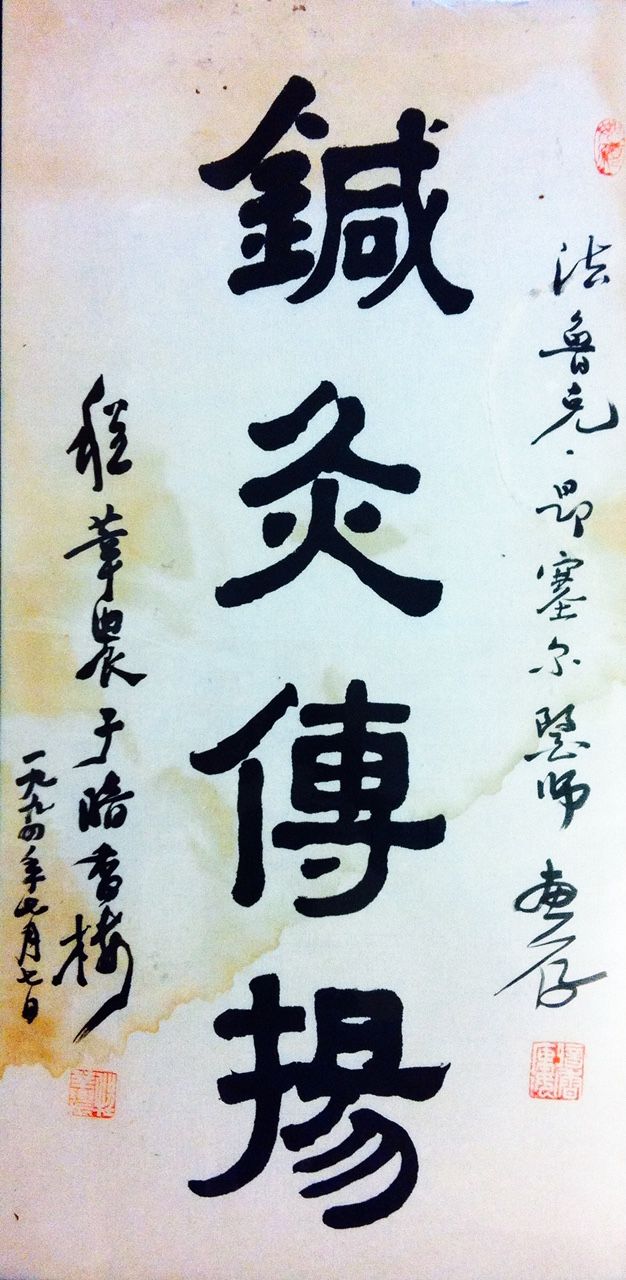 法魯克·昂塞尔醫师 惠存
鍼灸傳揚
程莘農于暗香楼
一九九四年七月七日